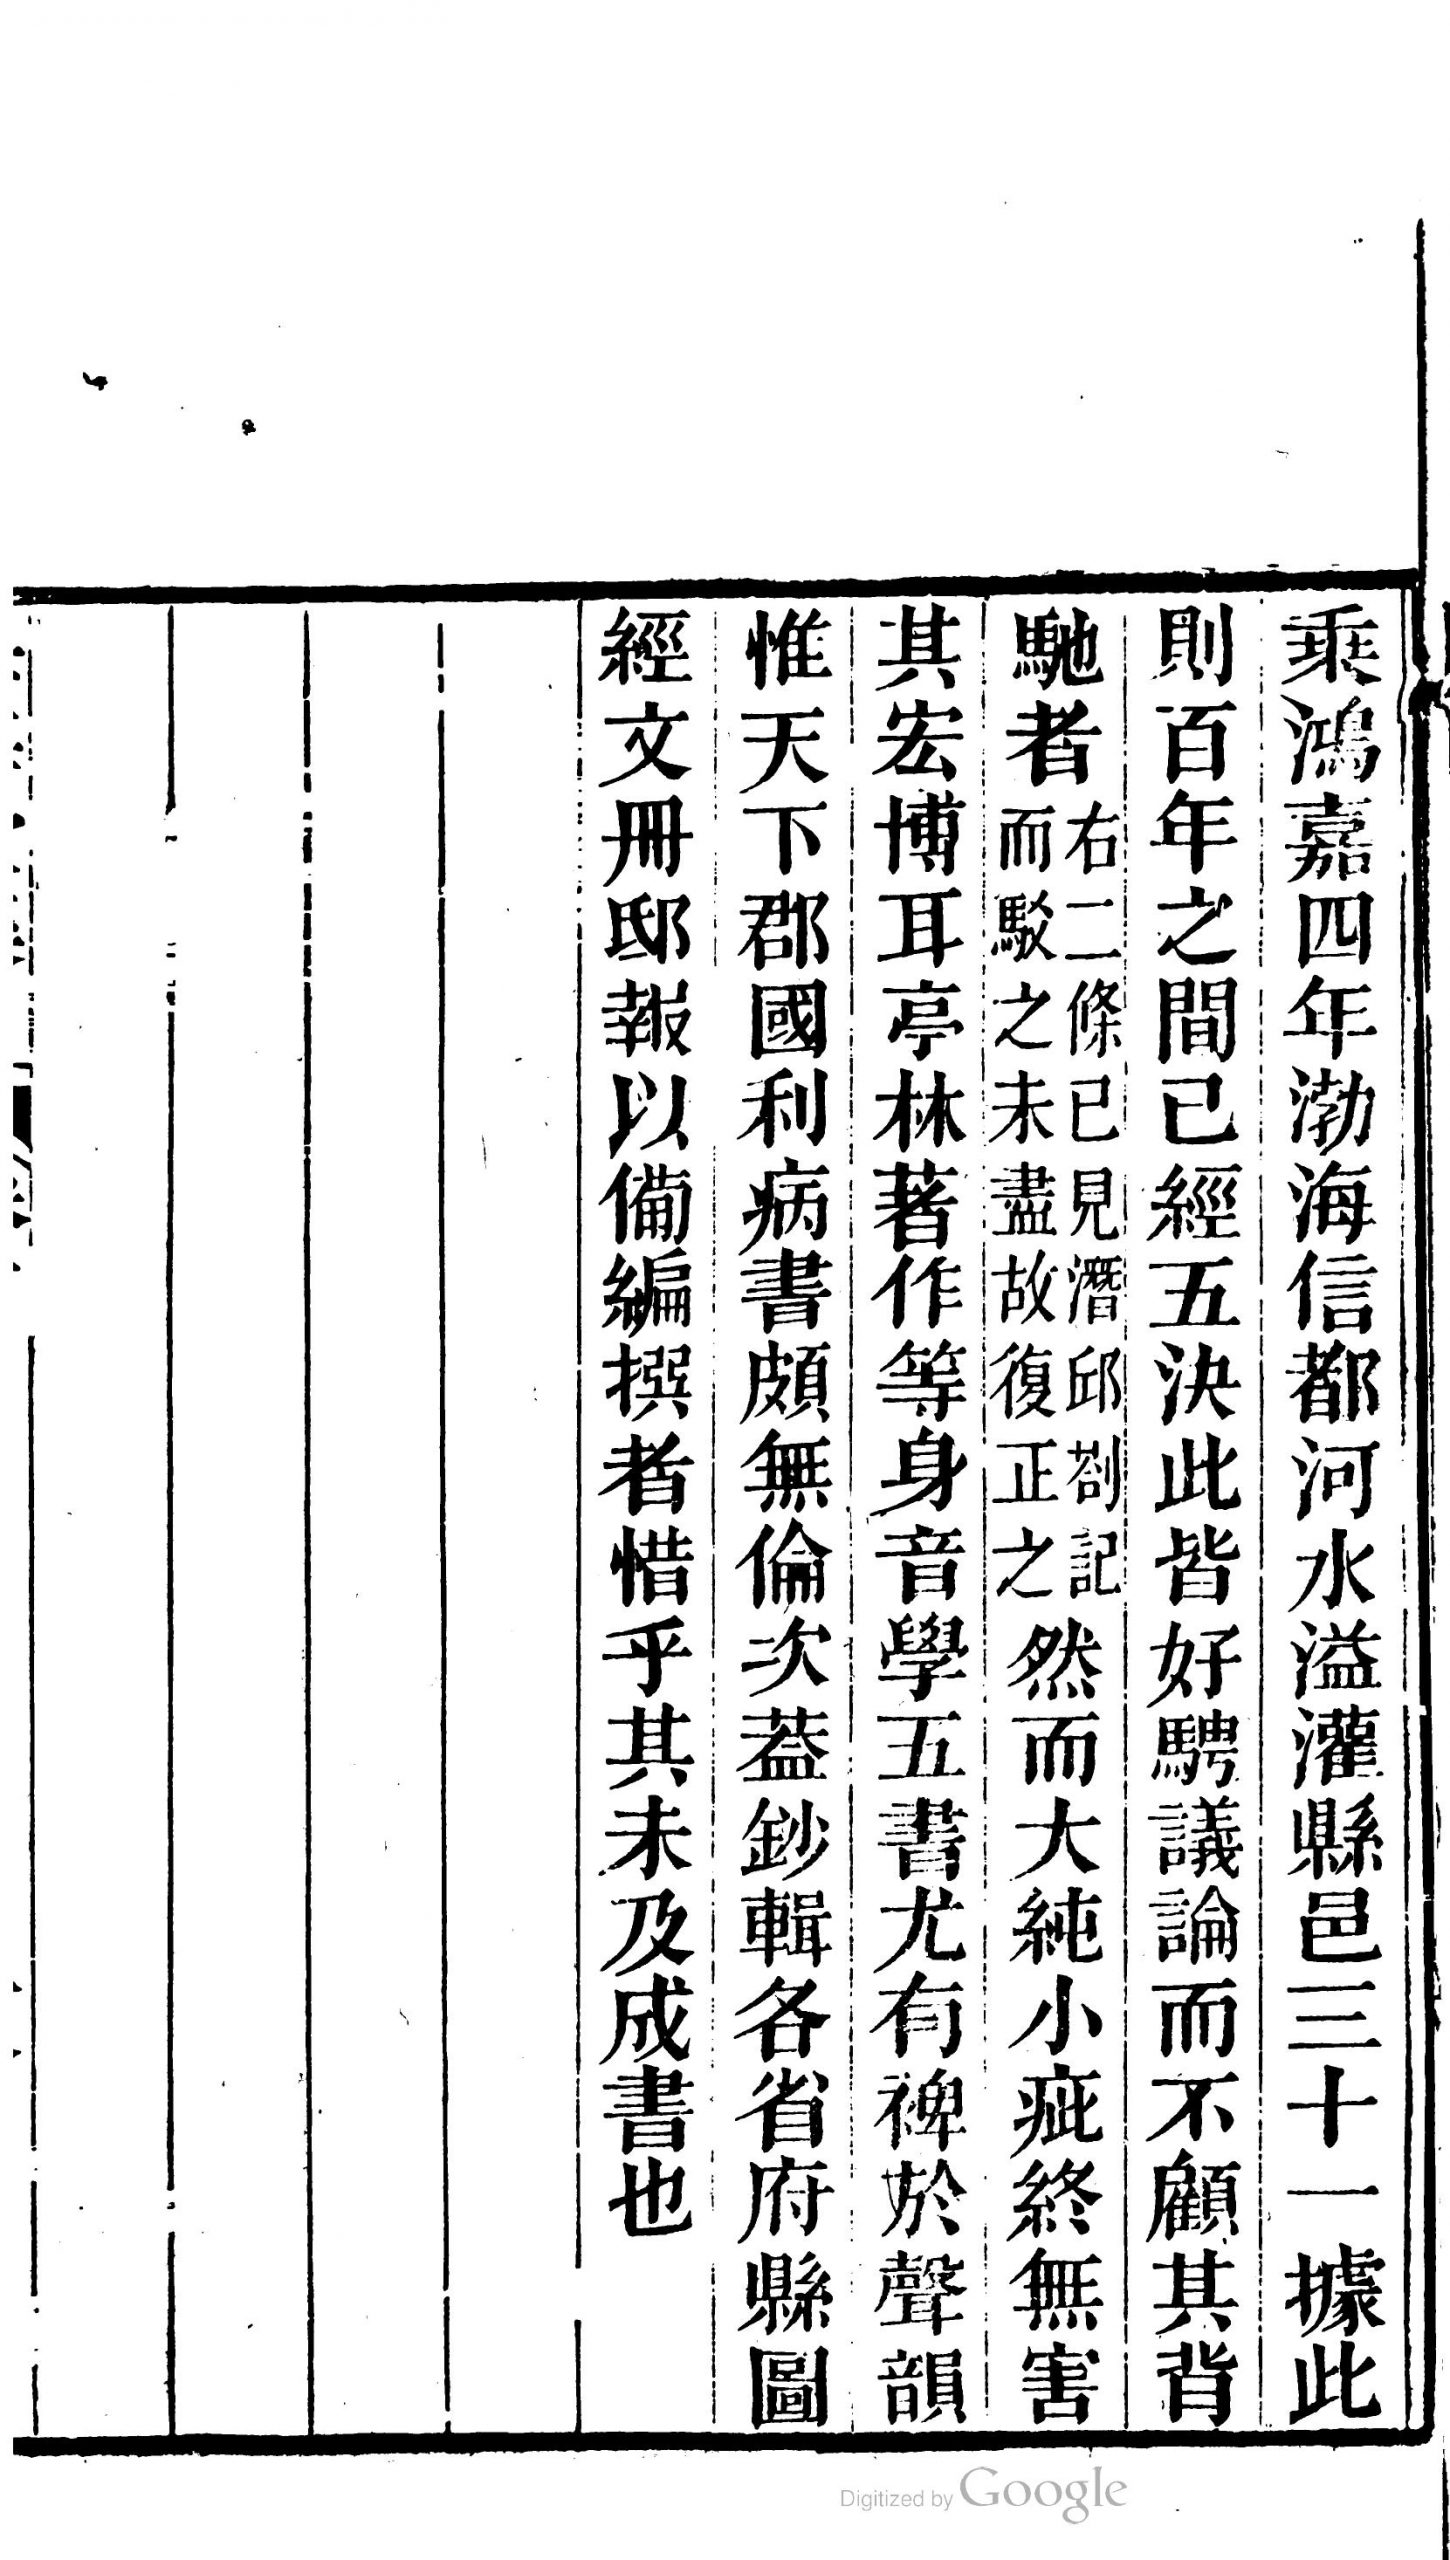 乘鴻嘉四年渤海信都河水溢灌縣邑三十一據此
則百年之間已經五決此皆好騁議論而不顧其背
馳者右二條已見潛邱劄記而駁之未盡故復正之然而大純小疵終無害
其宏博耳亭林著作等身音學五書尤有裨於聲韻
惟天下郡國利病書頗無倫次葢鈔輯各省府縣圖
經文冊邸報以備編撰者惜乎其未及成書也
Digitized by Google